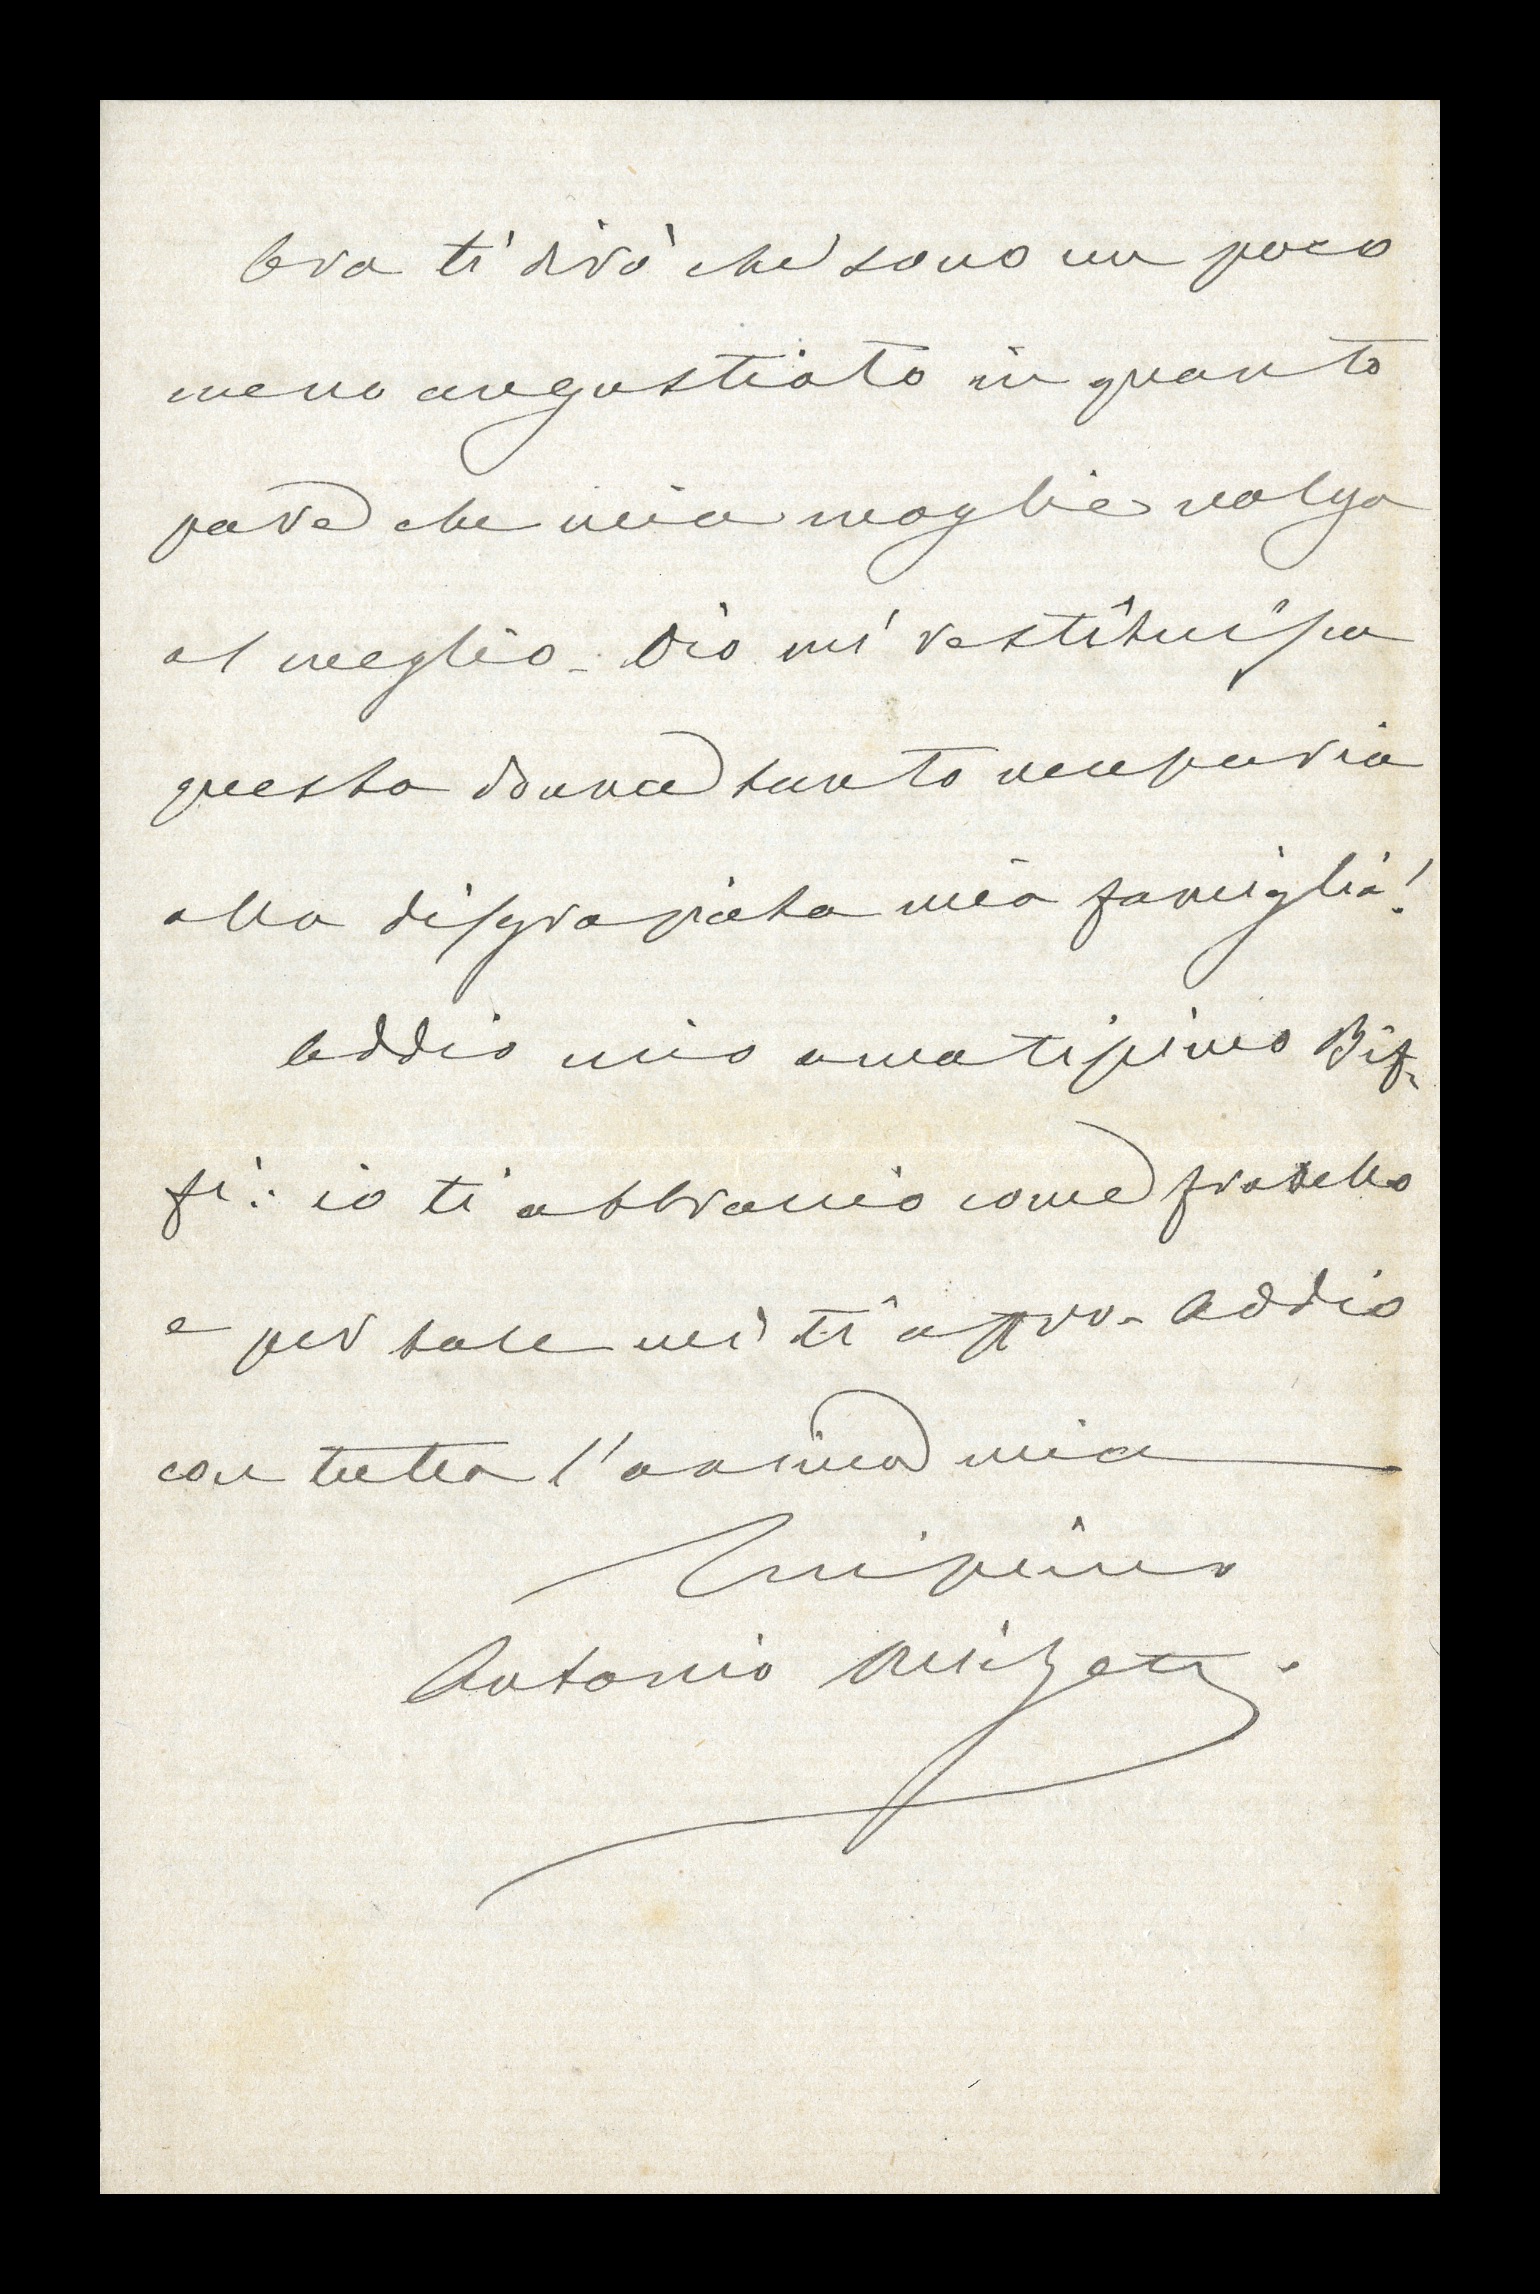 Ora ti dirò che sono un poco
meno angustiato in quanto
pare che mia moglie volga
al meglio - Dio mi restituisca
questa donna tanto necessaria
alla disgraziata mia famiglia!
Addio mio amatissimo Bif-
fi: io ti abbraccio come fratello
e per tale mi ti offro - Addio
con tutta l'anima mia
Antonio